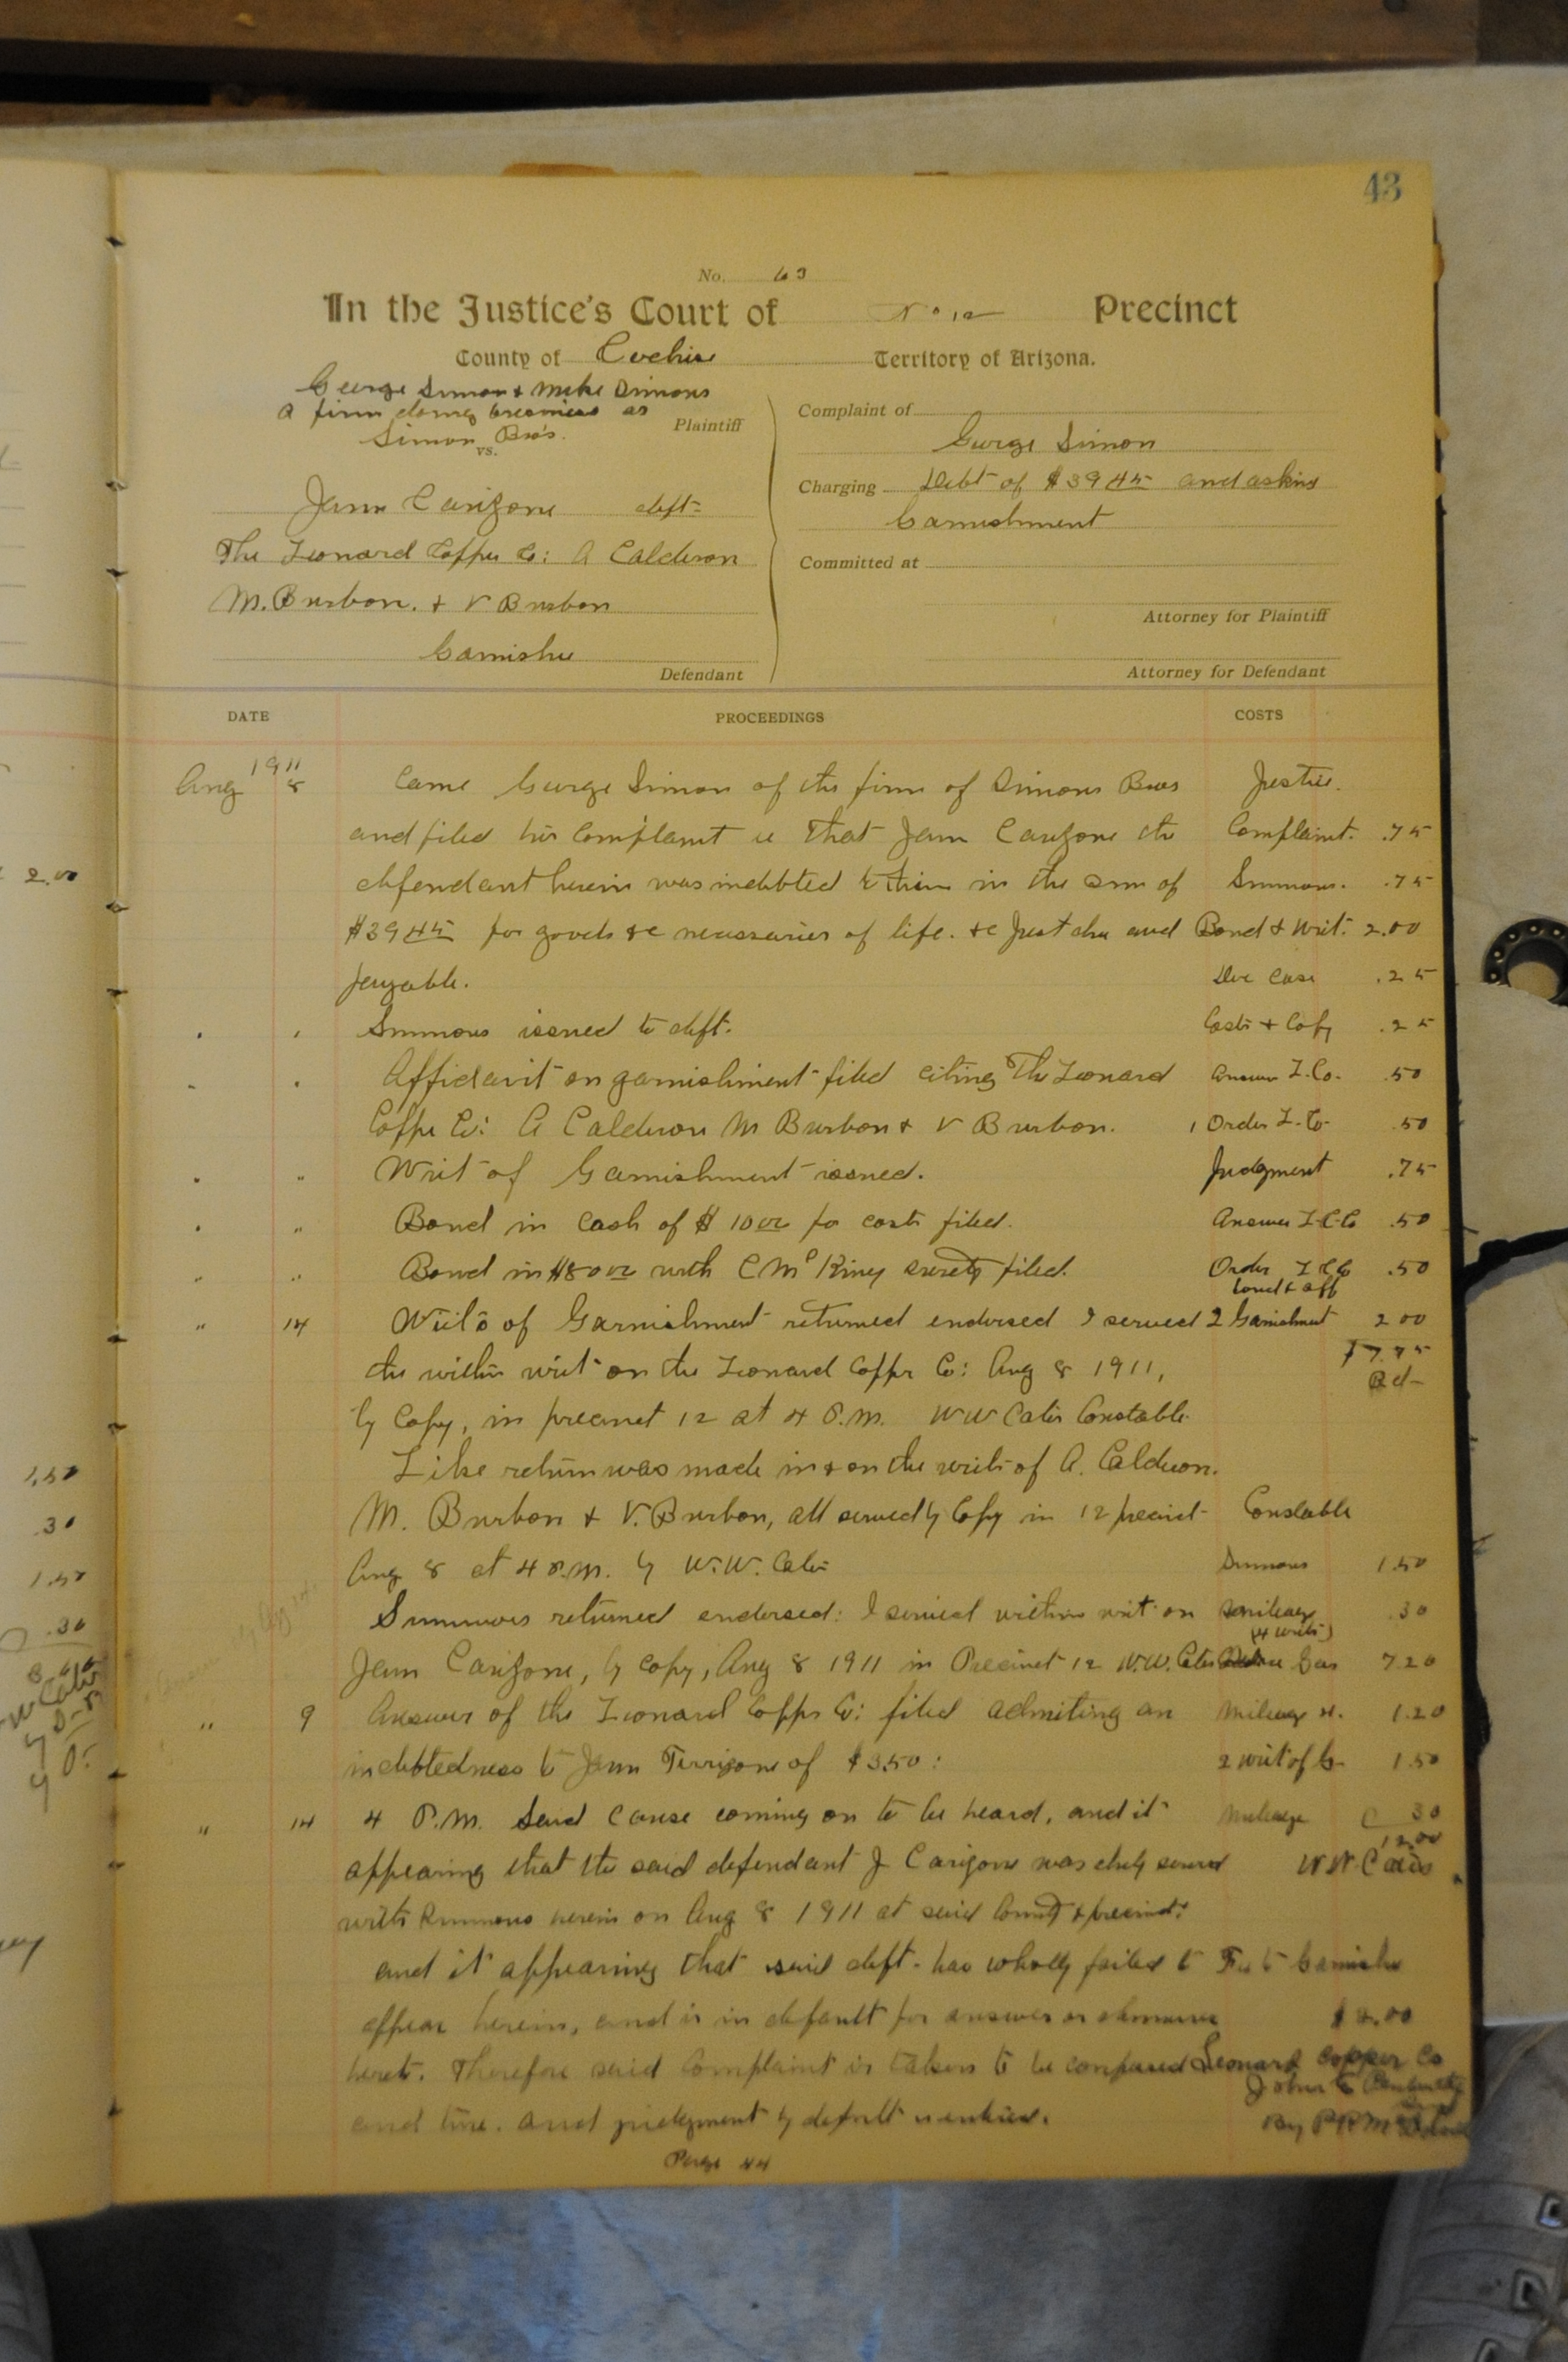 43
No. 63
In the Justice's Court of No 12 Precinct
County of Cochise Territory of Arizona.
George Simon & Mike Simons
a firm doing business as
Simon Bros.
Plaintiff
vs.
Juan Carizone deft-
The Leonard Copper Co: A Calderon
M. Burbon. & V Burbon
Garnishee
Defendant
Complaint of
George Simon
Charging Debt of $39 45 and asking
Garnishment
Committed at
Attorney for Plaintiff
Attorney for Defendant
DATE PROCEEDINGS COSTS
1911
Aug 8 Came George Simon of the firm of Simons Bros Justice.
and filed his Complaint ie that Juan Carizone the Complaint. .75
defendant herein was indebted to him in the sum of Summons. .75
$39 45 for goods &c necessaries of life. &c Just due and Bond & Writ. 2.00
payable. Doc Case .25
" " Summons issued to deft. Costs & Copy .25
" " Affidavit on garnishment filed citing The Leonard Answer L.Co. .50
Copper Co: A Calderon M Burbon & V Burbon. 1 Order L. Co- .50
" " Writ of Garnishment issued. Judgment .75
" " Bond in Cash of $ 10 00 for costs filed. Answer L.C.Co .50
" " Bond in $80 00 with C Mc Kiney surety filed. Order L C Co .50
bond & aff
" 14 Writs of Garnishment returned endorsed I served 2 Garnishment 2 00
the within writ on the Leonard Copper Co: Aug 8 1911,
by Copy, in precinct 12 at 4 P.M. W W Cates Constable
Like return was made in & on the writs of A. Calderon.
M. Burbon & V. Burbon, all served by Copy in 12 precinct Constable
Aug 8 at 4 P.m. by W. W. Cates Summons 1.50
Summons returned endorsed: I served within writ on mileage .30
(4 writs)
Juan Carizone, by copy, Aug 8 1911 in Precinct 12 W.W. Cates Gar 7 20
" 9 Answer of the Leonard Copper Co: filed admitting an Mileage 4. 1.20
indebtedness to Juan Terrizone of $3.50: 2 writ of G- 1.50
" 14 4 P.M. Said Cause coming on to be heard, and it Mileage 30
12.00
appearing that the said defendant J Carizone was duly served W W Cates
with Summons herein on Aug 8 1911 at said County & precinct.
and it appearing that said deft. has wholly failed to Fee to Garnishee
appear herein, and is in default for answer or demurrer $2.00
hereto. Therefore said Complaint is taken to be confessed Leonard Copper Co
and true. and judgment by default is entered.
Page 44
2.00
1.50
.30
1.50
.30